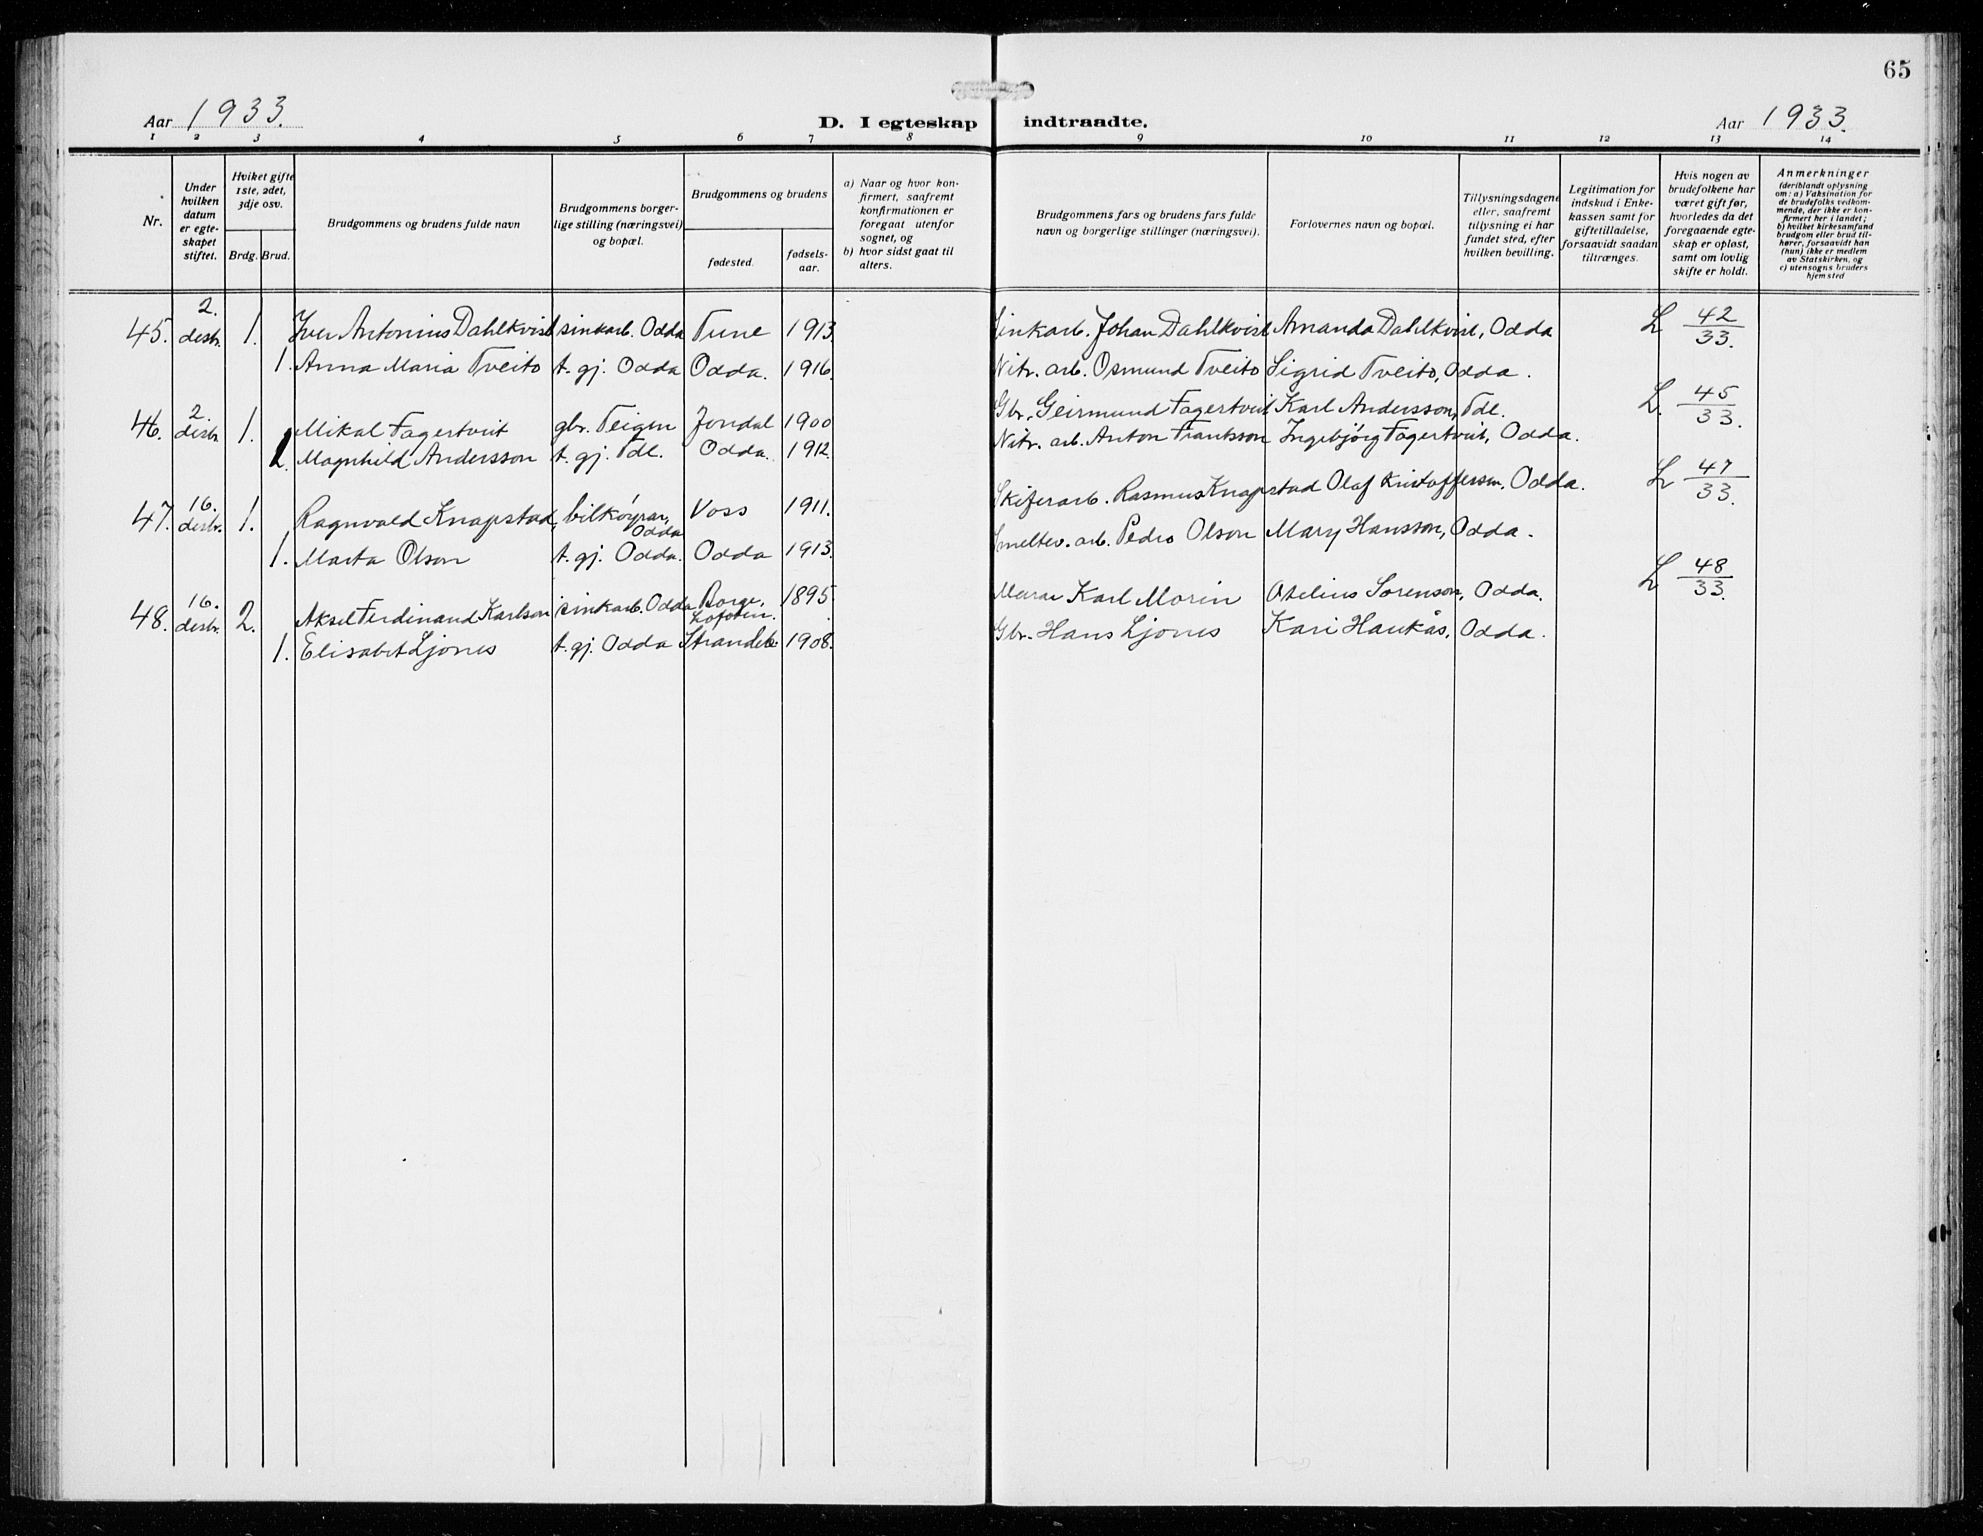 65
Aar 1933.
D. I egteskap indtraadte.
Aar 1933.
1 2 3 4 5 6 7 8 9 10 11 12 13 14
Nr.
Under hvilken datum er egteskapet stiftet.
Hviket gifte 1ste, 2det, 3dje osv.
Brdg. Brud.
Brudgommens og brudens fulde navn
Brudgommens borgerlige stilling (næringsvei) og bopæl.
Brudgommens og brudens
fødested.
fødselsaar.
a) Naar og hvor konfirmert, saafremt konfirmationen er foregaat utenfor sognet, og
b) hvor sidst gaat til alters.
Brudgommens fars og brudens fars fulde navn og borgerlige stillinger (næringsvei).
Forlovernes navn og bopæl.
Tillysningsdagene eller, saafremt tillysning ei har fundet sted, efter hvilken bevilling.
Legitimation for indskud i Enkekassen samt for giftetilladelse, forsaavidt saadan tiltrænges.
Hvis nogen av brudefolkene har været gift før, hvorledes da det foregaaende egteskap er opløst, samt om lovlig skifte er holdt.
Anmerkninger
(deriblandt oplysning om: a) Vaksination for de brudefolks vedkommende, der ikke er konfirmert her i landet; b) hvilket kirkesamfund brudgom eller brud tilhører, forsaavidt han (hun) ikke er medlem av Statskirken, og c) utensogns bruders hjemsted
45. 2. desbr. 1. Iver Antonius Dahlkvist sinkarb. Odda Tune 1913. Sinkarb. Johan Dahlkvist Amanda Dahlkvist, Odda L 42/33.
1. Anna Maria Tveito t. gj. Odda Odda. 1916. Nitr. arb. Osmund Tveito Sigrid Tveito, Odda.
46. 2. desbr. 1. Mikal Fagertveit gbr. Teigen Jondal 1900 Gbr. Geirmund Fagertveit Karl Andersson, Tdl. L. 45/33.
1. Magnhild Andersson t. gj. Tdl. Odda. 1912. Nitr. arb. Anton Frantsson Ingebjörg Fagertveit, Odda.
47. 16. desbr. 1. Ragnvald Knapstad, bilköyrar, Odda Voss 1911. Skiferarb. Rasmus Knapstad Olaf Kristoffersen, Odda. L 47/33.
1. Marta Olson t. gj. Odda. Odda 1913. Smeltev. arb. Pedro Olson Mary Hansson, Odda.
48. 16. desbr. 2. Aksel Ferdinand Karlson sinkarb. Odda Borge, Lofoten. 1895 Murar Karl Morin Otelius Sorenson, Odda. L 48/33.
1. Elisabet Ljones t. gj. Odda Strandeb 1908. Gbr. Hans Ljones Kari Haukås, Odda.